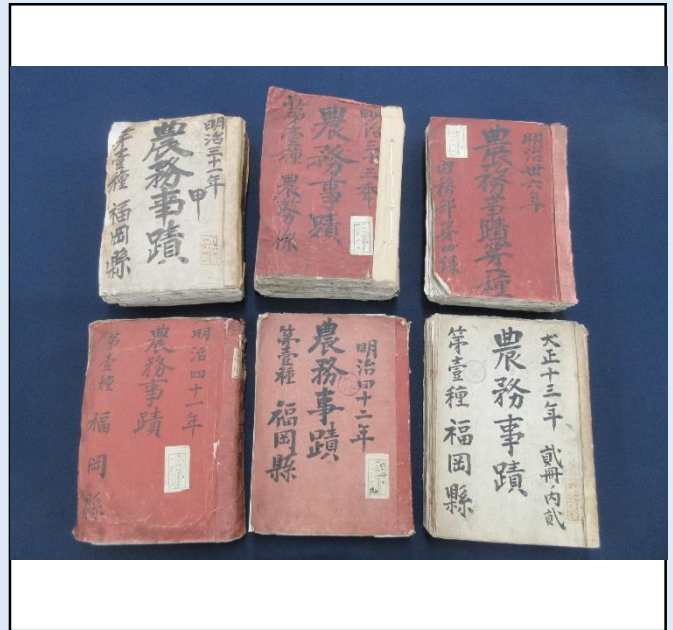 明治三十一年
農務事蹟 甲
第壹種 福岡縣
明治三十三年
農務事蹟
第壹種 農務係
明治卅六年
農務事蹟第一種
内務部第四課
明治四十一年
農務事蹟
第壹種 福岡縣
明治四十二年
農務事蹟
第壹種 福岡縣
大正十三年 貳冊ノ内貳
農務事蹟
第壹種 福岡縣